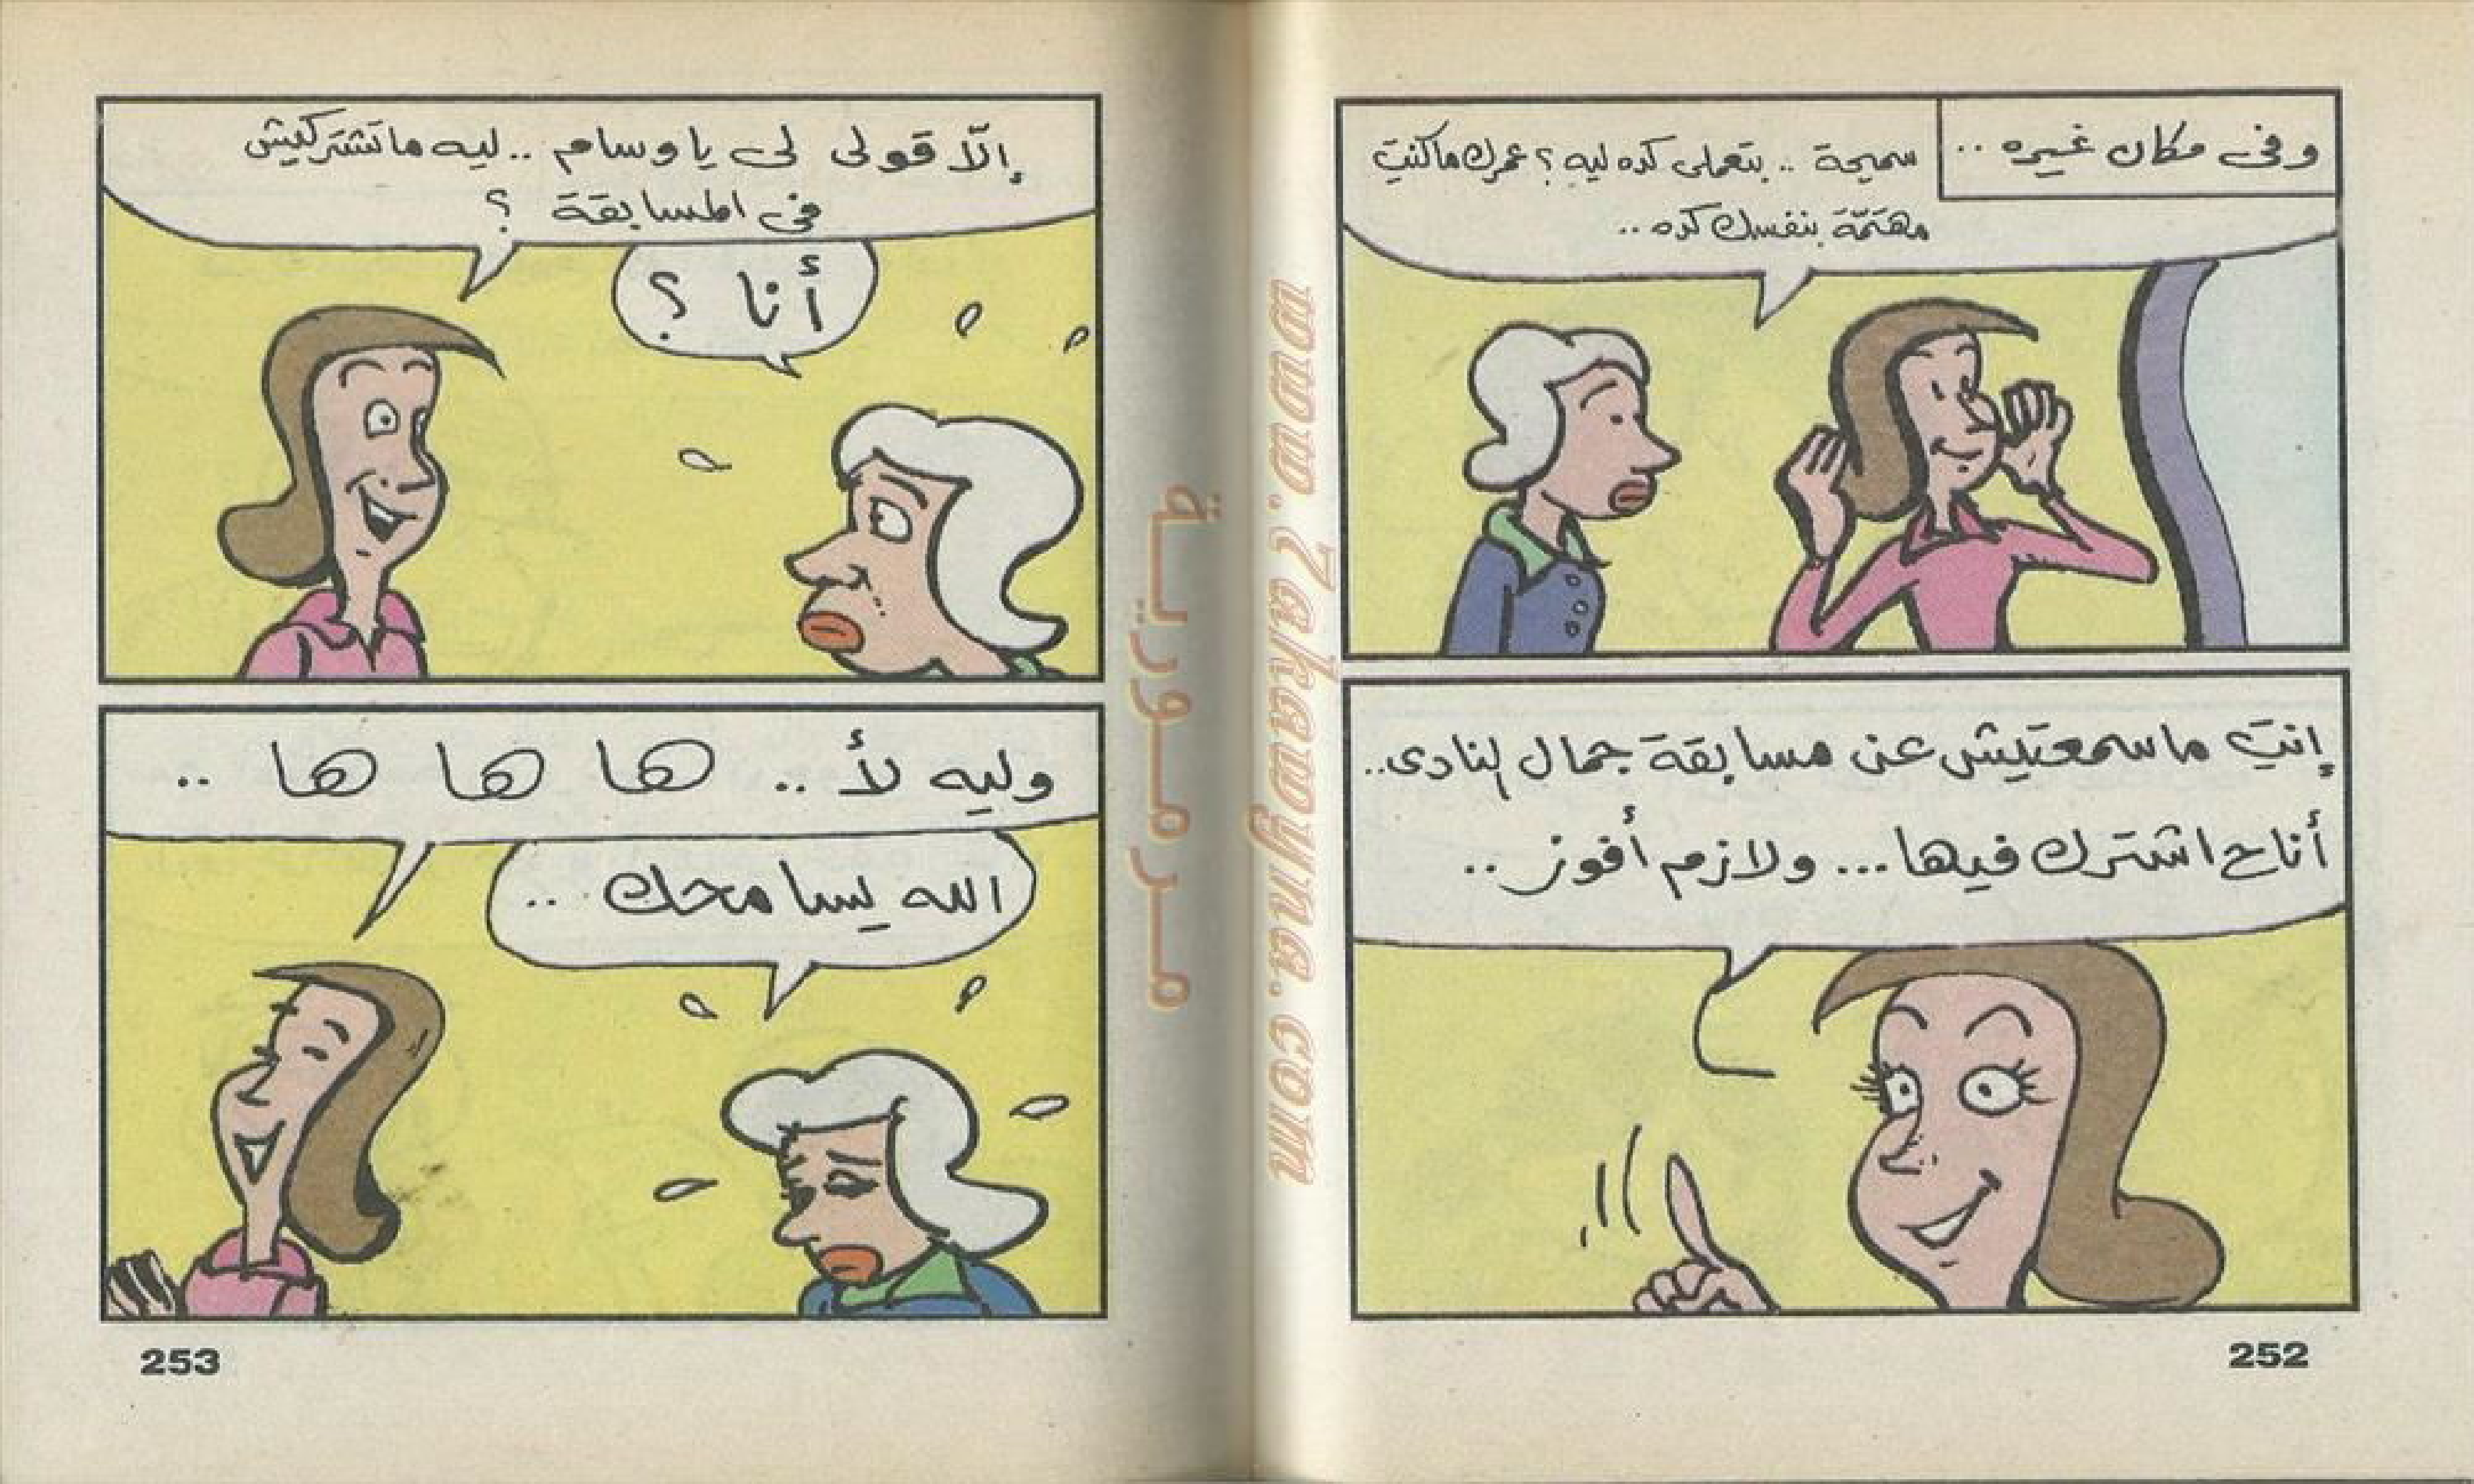 وفى مكان غيره ..
سميحة .. بتعملى كده ليه ؟ عمرك ماكنتِ
مهتمّة بنفسك كده ..
إنتِ ماسمعتيش عن مسابقة جمال النادى..
أناح اشترك فيها... ولازم أفوز ..
252
إلّا قولى لى ياوسام .. ليه ماتشتركيش
فى المسابقة ؟
أنا ؟
وليه لأ .. ها ها ها ..
الله يسامحك ..
253
مرمورية
www.7akawyna.com